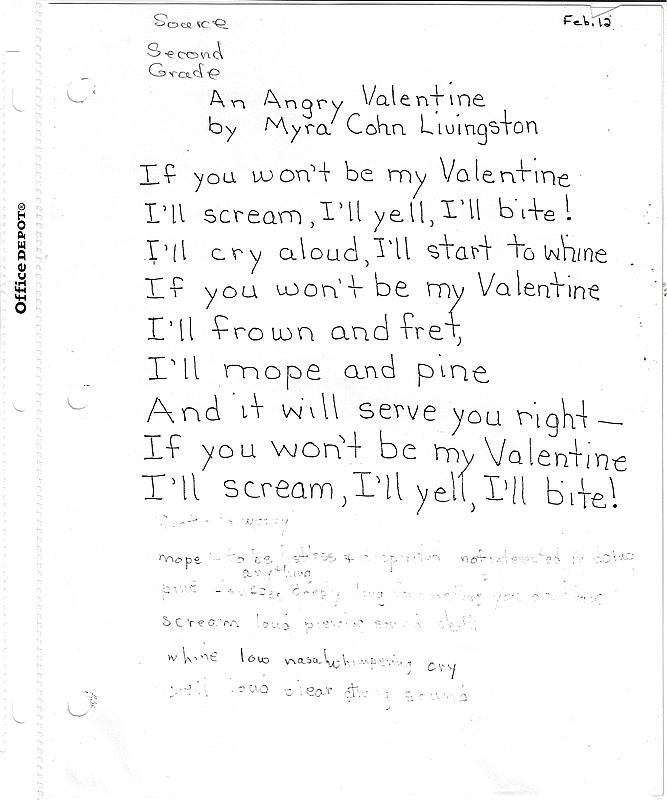 Source
Feb. 12
Second
Grade
An Angry Valentine
by Myra Cohn Livingston
If you won't be my Valentine
I'll scream, I'll yell, I'll bite!
I'll cry aloud, I'll start to whine
If you won't be my Valentine
I'll frown and fret,
I'll mope and pine
And it will serve you right —
If you won't be my Valentine
I'll scream, I'll yell, I'll bite!
worry
mope - to be not interested in doing
anything
pine -
scream loud piercing sound
whine low nasal whimpering cry
yell loud clear strong sound
Office DEPOT®